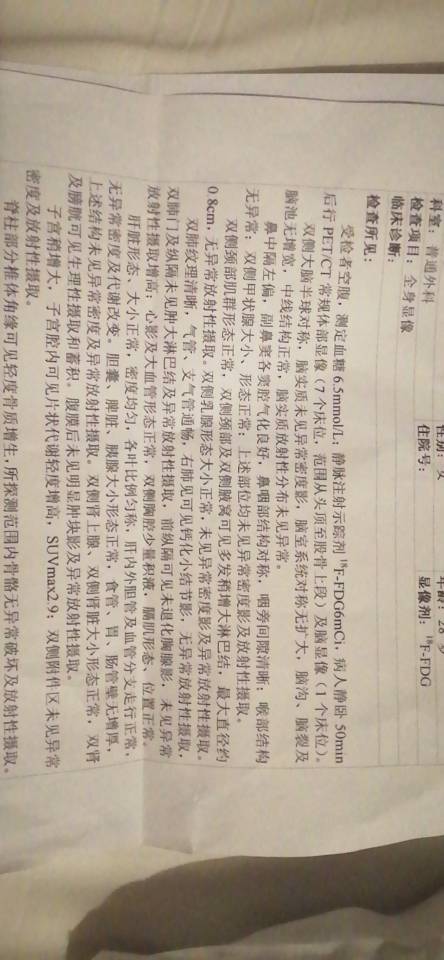 科室：普通外科 性别：女 年龄：28 岁
检查项目：全身显像 住院号： 显像剂：¹⁸F-FDG
临床诊断：
检查所见：
受检者空腹，测定血糖 6.5mmo/L；静脉注射示踪剂 ¹⁸F-FDG6mCi，病人静卧 50min
后行 PET/CT 常规体部显像（7 个床位，范围从头顶至股骨上段）及脑显像（1 个床位）。
双侧大脑半球对称，脑实质未见异常密度影，脑室系统对称无扩大，脑沟、脑裂及
脑池无增宽，中线结构正常，脑实质放射性分布未见异常。
鼻中隔左偏，副鼻窦各窦腔气化良好，鼻咽部结构对称，咽旁间隙清晰；喉部结构
无异常；双侧甲状腺大小、形态正常；上述部位均未见异常密度影及放射性摄取。
双侧颈部肌群形态正常，双侧颈部及双侧腋窝可见多发稍增大淋巴结，最大直径约
0.8cm，无异常放射性摄取。双侧乳腺形态大小正常，未见异常密度影及异常放射性摄取。
双肺纹理清晰，气管、支气管通畅，右肺可见钙化小结节影，无异常放射性摄取，
双肺门及纵隔未见肿大淋巴结及异常放射性摄取，前纵隔可见未退化胸腺影，未见异常
放射性摄取增高；心影及大血管形态正常，双侧胸腔少量积液，膈肌形态、位置正常。
肝脏形态、大小正常，密度均匀，各叶比例匀称，肝内外胆管及血管分支走行正常，
无异常密度及代谢改变。胆囊、脾脏、胰腺大小形态正常，食管、胃、肠管壁无增厚，
上述结构未见异常密度及异常放射性摄取。双侧肾上腺、双侧肾脏大小形态正常，双肾
及膀胱可见生理性摄取和蓄积。腹膜后未见明显肿块影及异常放射性摄取。
子宫稍增大，子宫腔内可见片状代谢轻度增高，SUVmax2.9；双侧附件区未见异常
密度及放射性摄取。
脊柱部分椎体角缘可见轻度骨质增生；所探测范围内骨骼无异常破坏及放射性摄取。